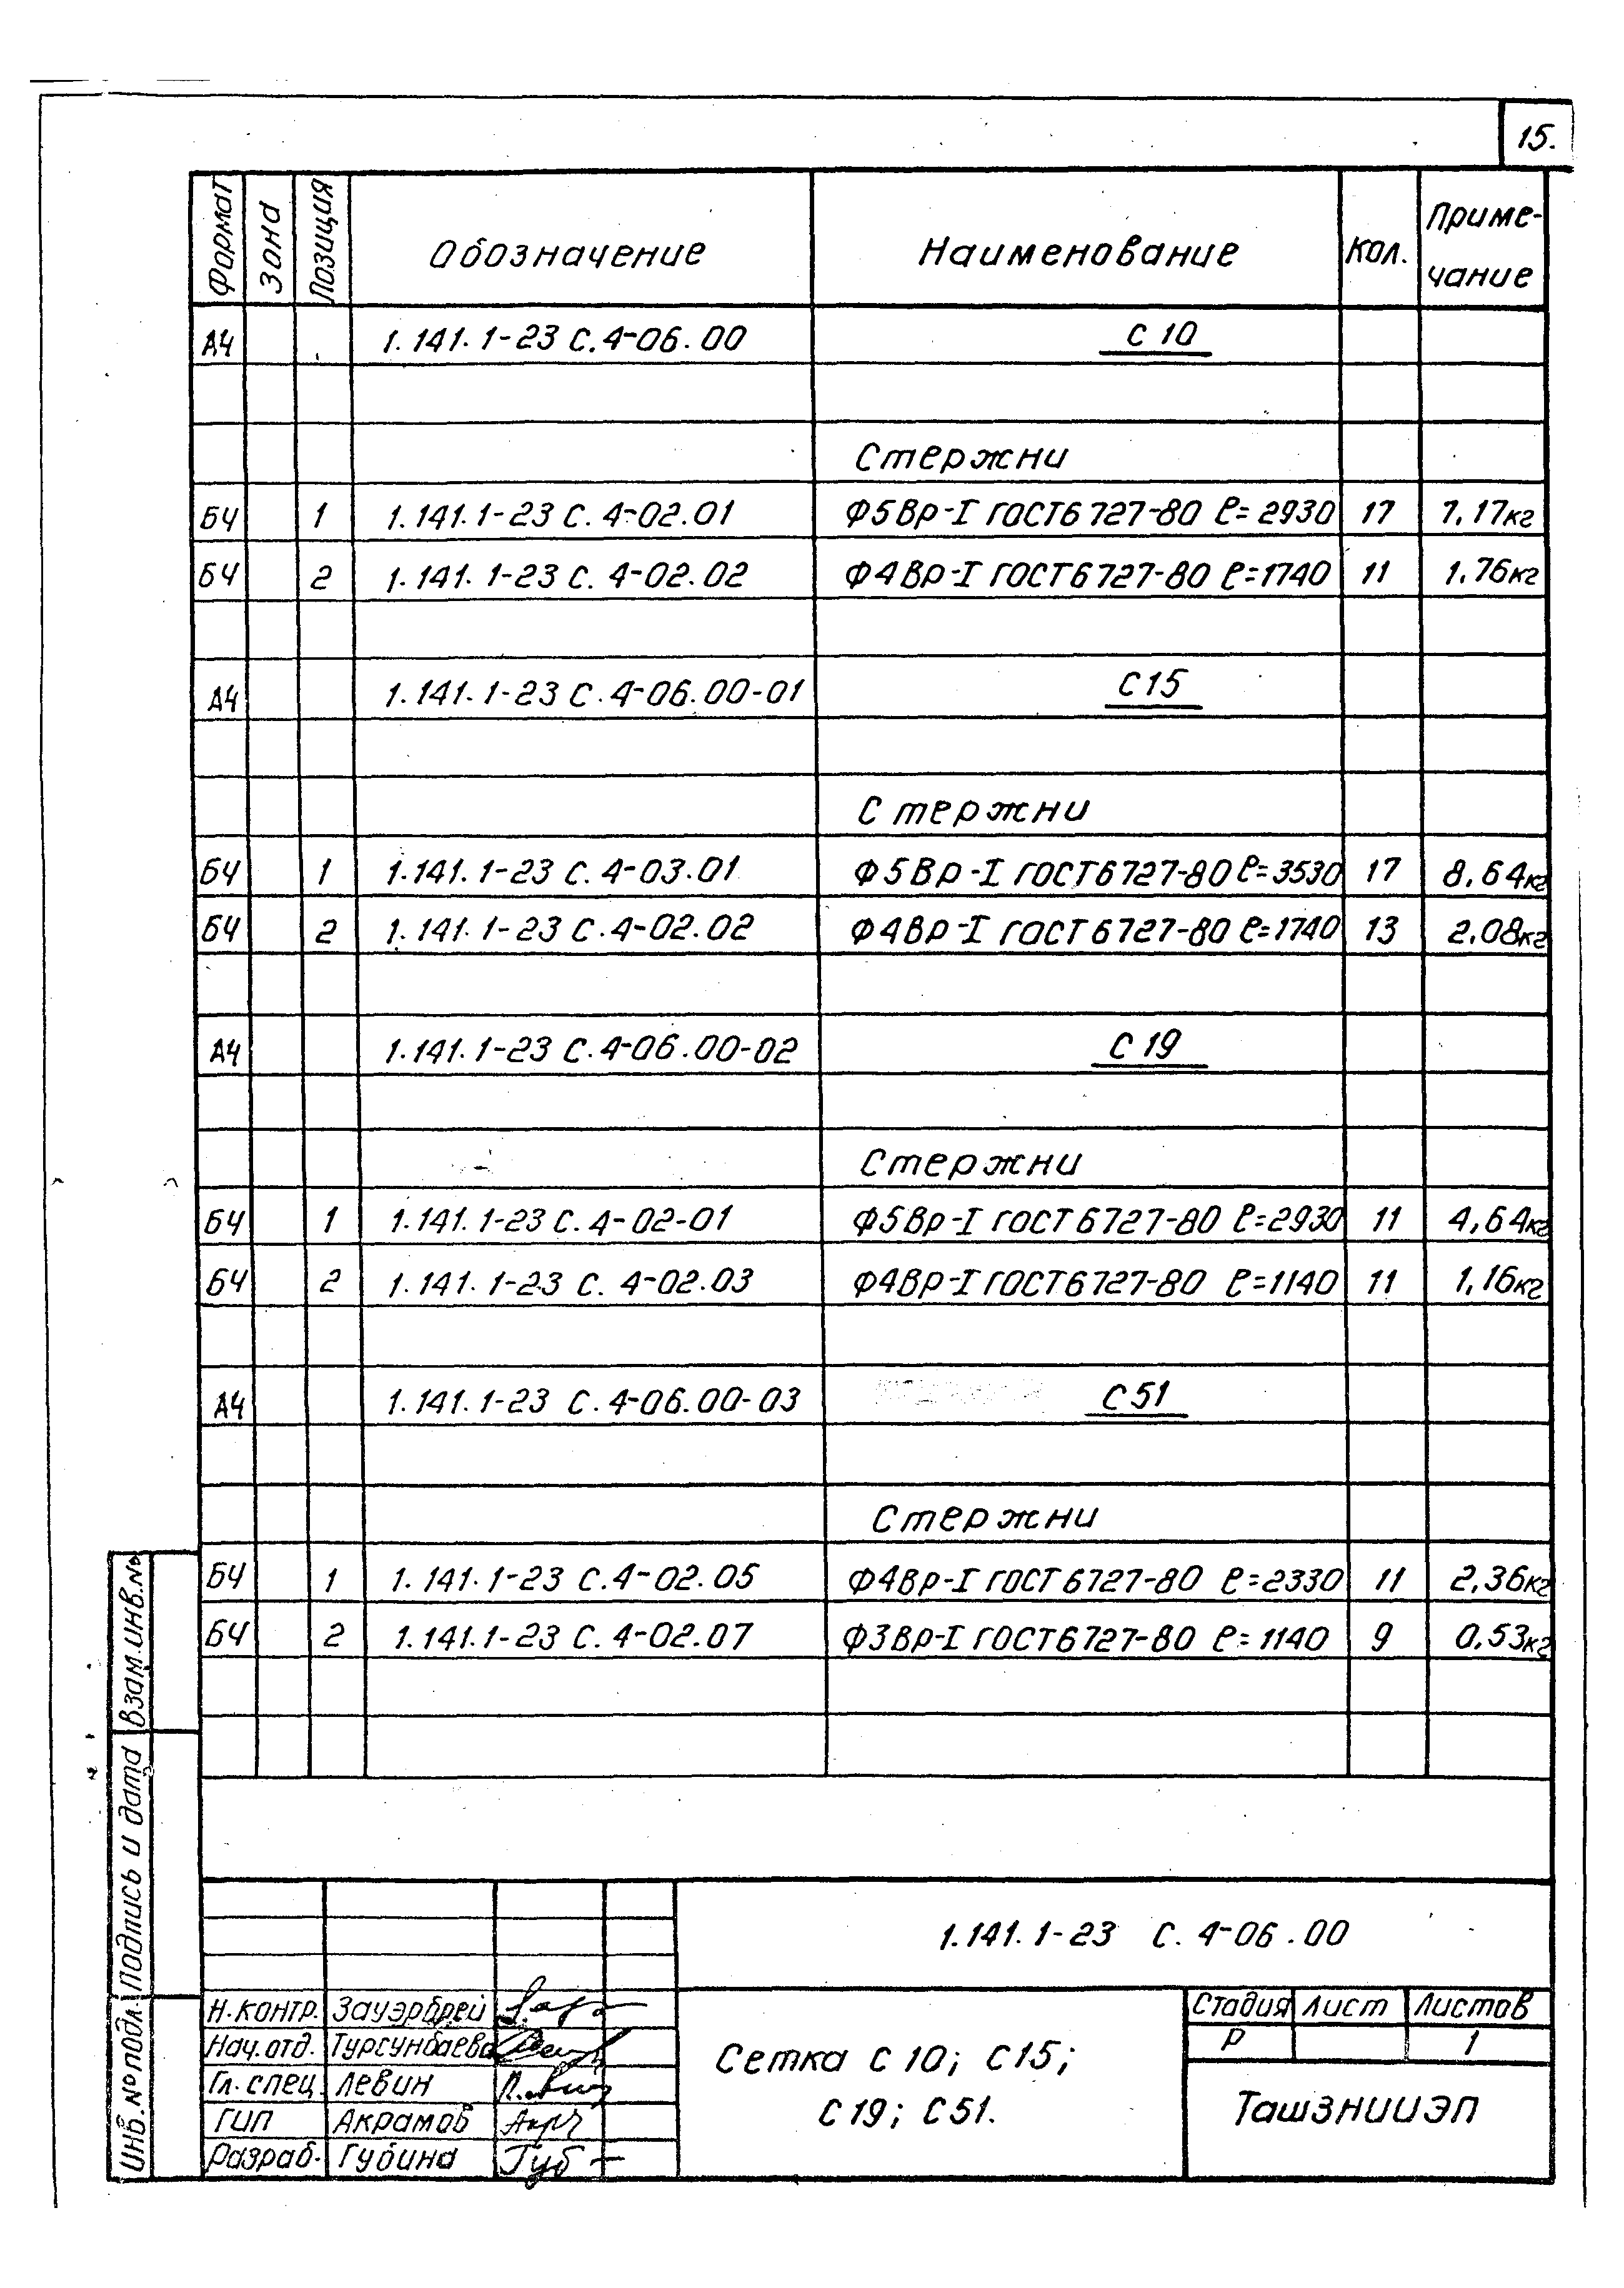 15.
Формат Зона Позиция Обозначение Наименование Кол. Приме-
чание
А4 1.141.1-23 С.4-06.00 С 10
Стержни
БЧ 1 1.141.1-23 С.4-02.01 Ф5Вр-I ГОСТ6727-80 ℓ=2930 17 7,17кг
БЧ 2 1.141.1-23 С.4-02.02 Ф4Вр-I ГОСТ6727-80 ℓ=1740 11 1,76кг
А4 1.141.1-23 С.4-06.00-01 С15
Стержни
БЧ 1 1.141.1-23 С.4-03.01 Ф5Вр-I ГОСТ6727-80 ℓ=3530 17 8,64кг
БЧ 2 1.141.1-23 С.4-02.02 Ф4Вр-I ГОСТ6727-80 ℓ=1740 13 2,08кг
А4 1.141.1-23 С.4-06.00-02 С 19
Стержни
БЧ 1 1.141.1-23 С.4-02-01 Ф5Вр-I ГОСТ6727-80 ℓ=2930 11 4,64кг
БЧ 2 1.141.1-23 С.4-02.03 Ф4Вр-I ГОСТ6727-80 ℓ=1140 11 1,16кг
А4 1.141.1-23 С.4-06.00-03 С 51
Стержни
БЧ 1 1.141.1-23 С.4-02.05 Ф4Вр-I ГОСТ6727-80 ℓ=2330 11 2,36кг
БЧ 2 1.141.1-23 С.4-02.07 Ф3Вр-I ГОСТ6727-80 ℓ=1140 9 0,53кг
Взам.инв.№
Подпись и дата
Инв.№подл.
1.141.1-23 С.4-06.00
Н.контр. Зауэрбрей
Нач.отд. Турсунбаева
Гл.спец. Левин
ГИП Акрамов
Разраб. Губина
Сетка С 10; С15;
С 19; С 51.
Стадия Лист Листов
Р 1
ТашЗНИИЭП